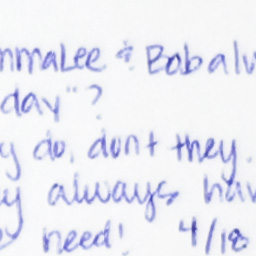 mmaLee & Bobalu
day"?
y do, don't they.
y always hav
need! 4/18